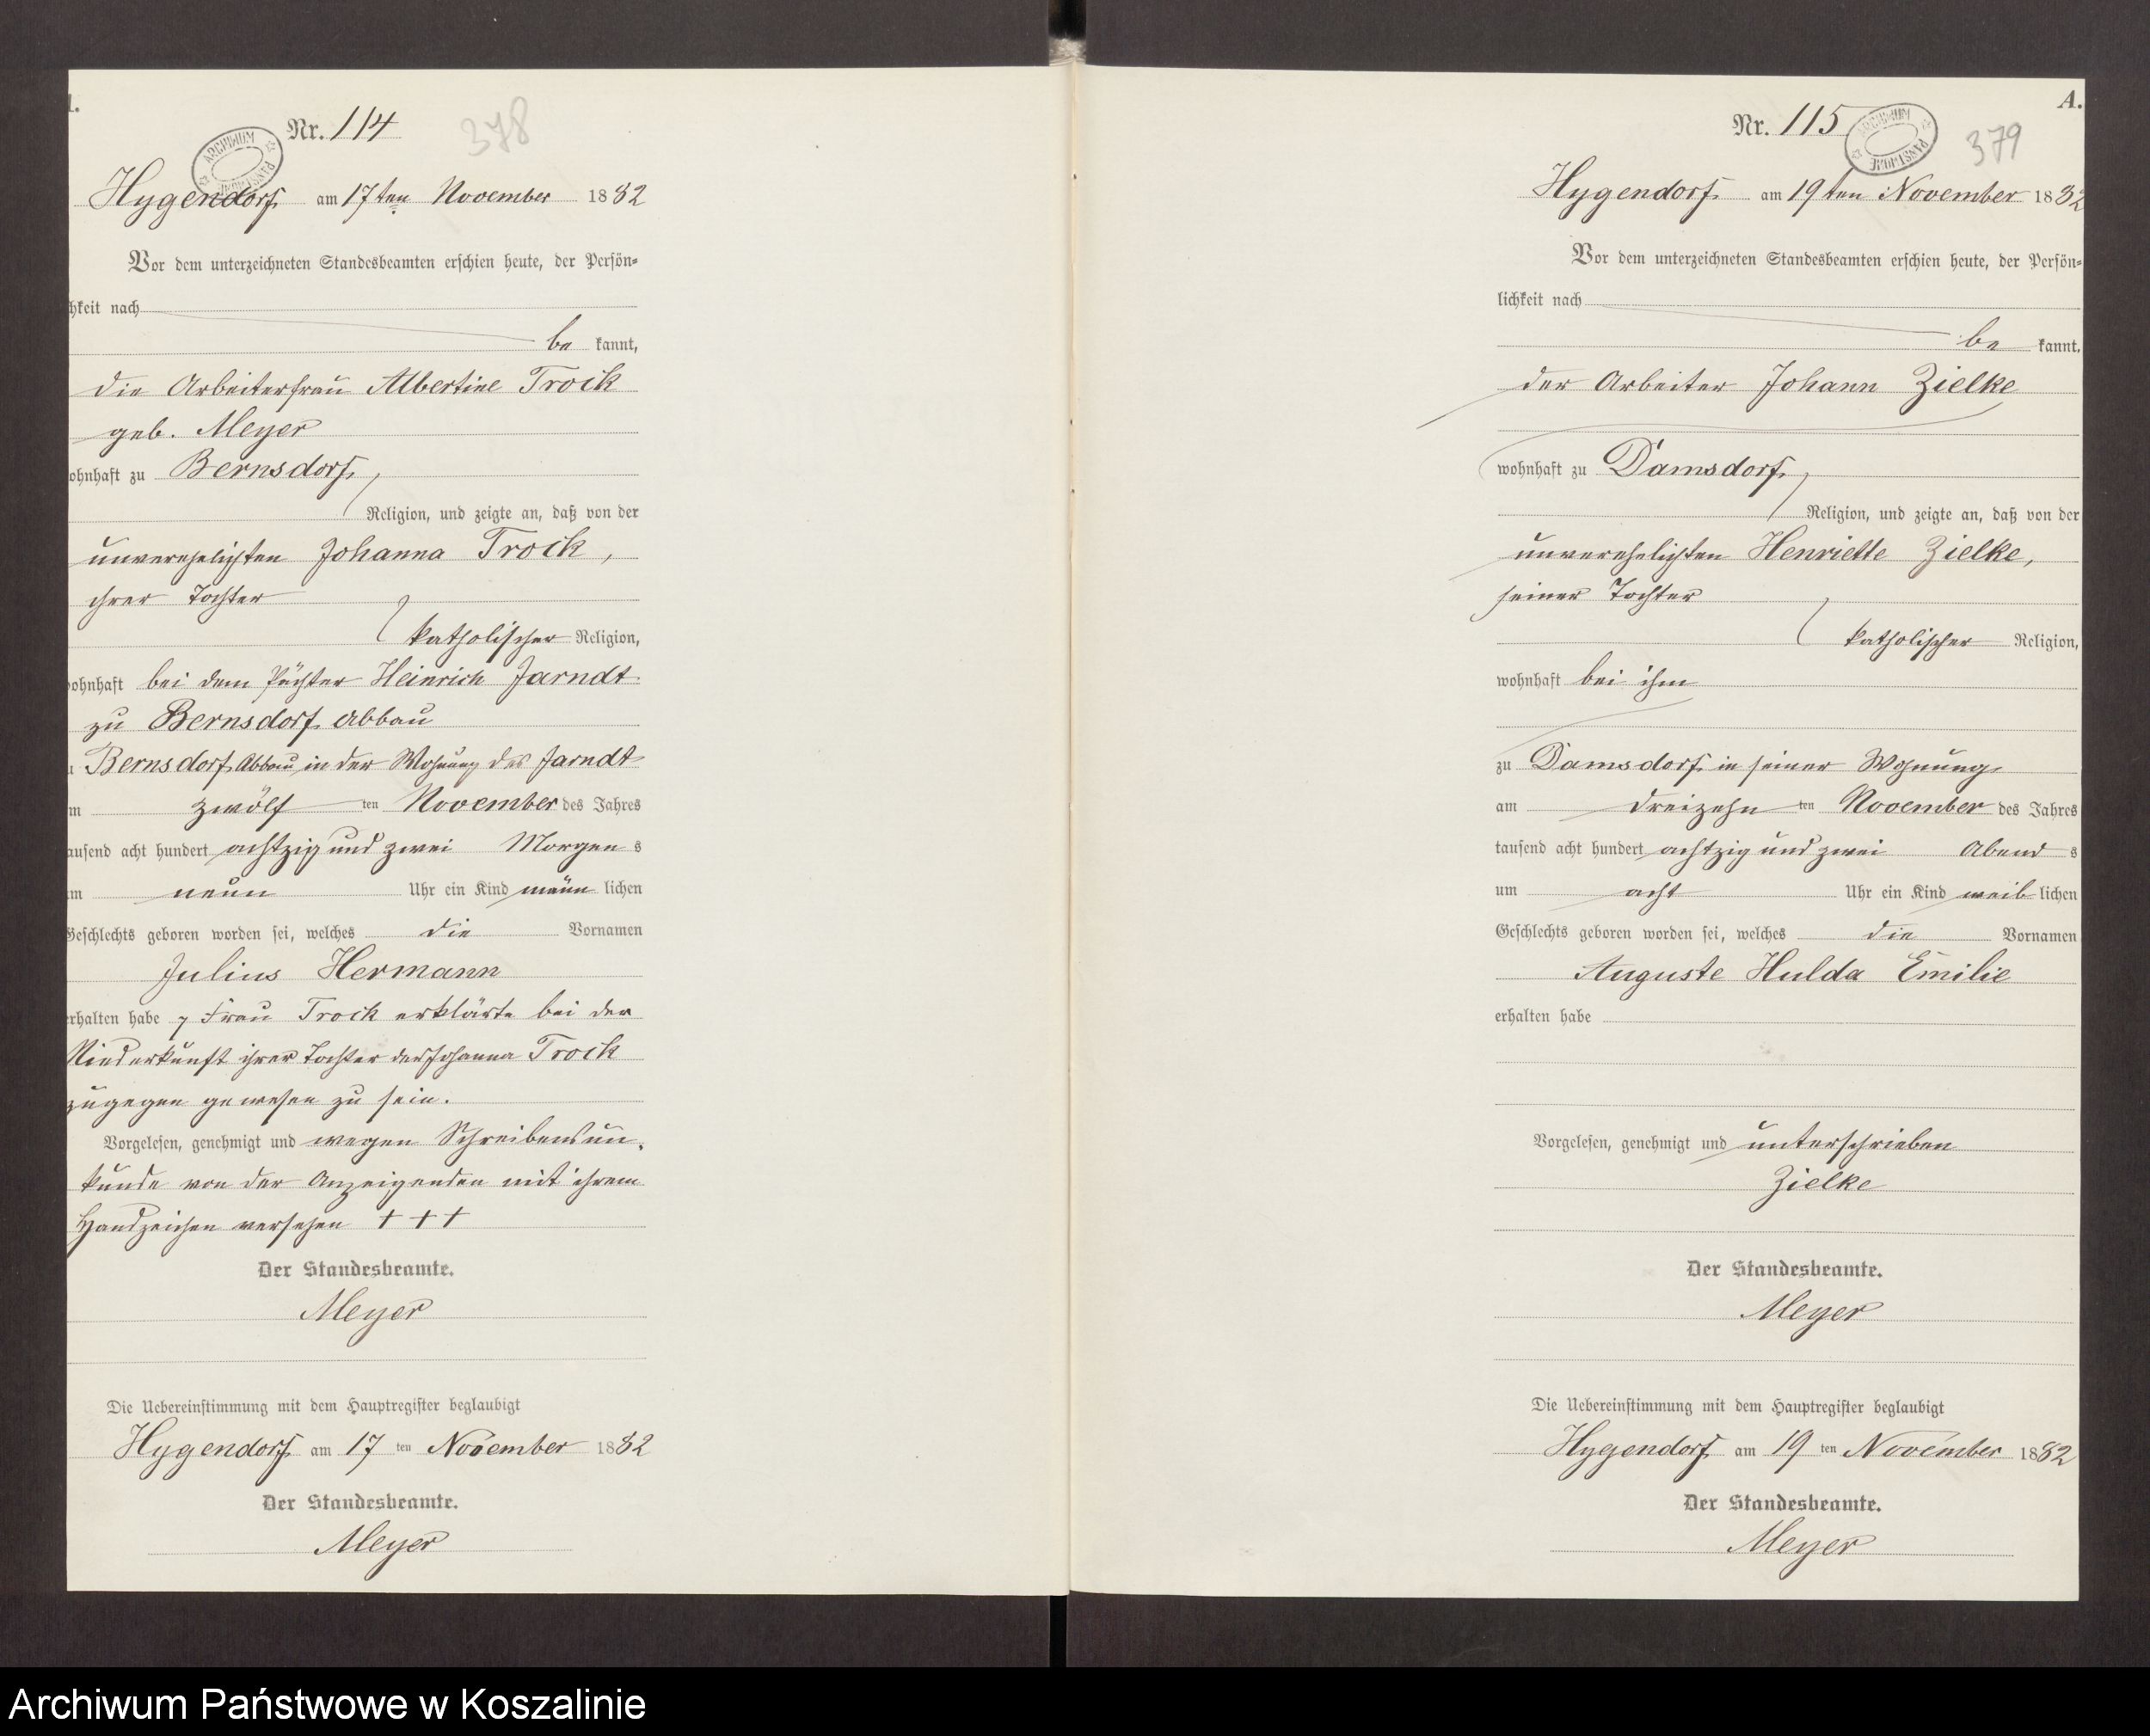 Nr. 114
378
ARCHIWUM PAŃSTWOWE
Hygendorf am 17ten November 1882
Vor dem unterzeichneten Standesbeamten erschien heute, der Persön-
hkeit nach
be kannt,
die Arbeiterfrau Albertine Trock
geb. Meyer
ohnhaft zu Bernsdorf,
Religion, und zeigte an, daß von der
unverehelichten Johanna Trock,
ihrer Tochter
katholischer Religion,
ohnhaft bei dem Pächter Heinrich Jarndt
zu Bernsdorf Abbau
u Bernsdorf Abbau in der Wohnung des Jarndt
m zwölf ten November des Jahres
ausend acht hundert achtzig und zwei Morgen s
m neun Uhr ein Kind männ lichen
Geschlechts geboren worden sei, welches die Vornamen
Julius Hermann
erhalten habe, Frau Trock erklärte bei der
Niederkunft ihrer Tochter der Johanna Trock
zugegen gewesen zu sein.
Vorgelesen, genehmigt und wegen Schreibensun-
kunde von der Anzeigenden mit ihrem
Handzeichen versehen + + +
Der Standesbeamte.
Meyer
Die Uebereinstimmung mit dem Hauptregister beglaubigt
Hygendorf am 17 ten November 1882
Der Standesbeamte.
Meyer
A.
Nr. 115
379
ARCHIWUM PAŃSTWOWE
Hygendorf am 19ten November 1882
Vor dem unterzeichneten Standesbeamten erschien heute, der Persön-
lichkeit nach
be kannt,
der Arbeiter Johann Zielke
wohnhaft zu Damsdorf,
Religion, und zeigte an, daß von der
unverehelichten Henriette Zielke,
seiner Tochter
katholischer Religion,
wohnhaft bei ihm
zu Damsdorf in seiner Wohnung
am dreizehn ten November des Jahres
tausend acht hundert achtzig und zwei Abend s
um acht Uhr ein Kind weib lichen
Geschlechts geboren worden sei, welches die Vornamen
Auguste Hulda Emilie
erhalten habe
Vorgelesen, genehmigt und unterschrieben
Zielke
Der Standesbeamte.
Meyer
Die Uebereinstimmung mit dem Hauptregister beglaubigt
Hygendorf am 19 ten November 1882
Der Standesbeamte.
Meyer
Archiwum Państwowe w Koszalinie